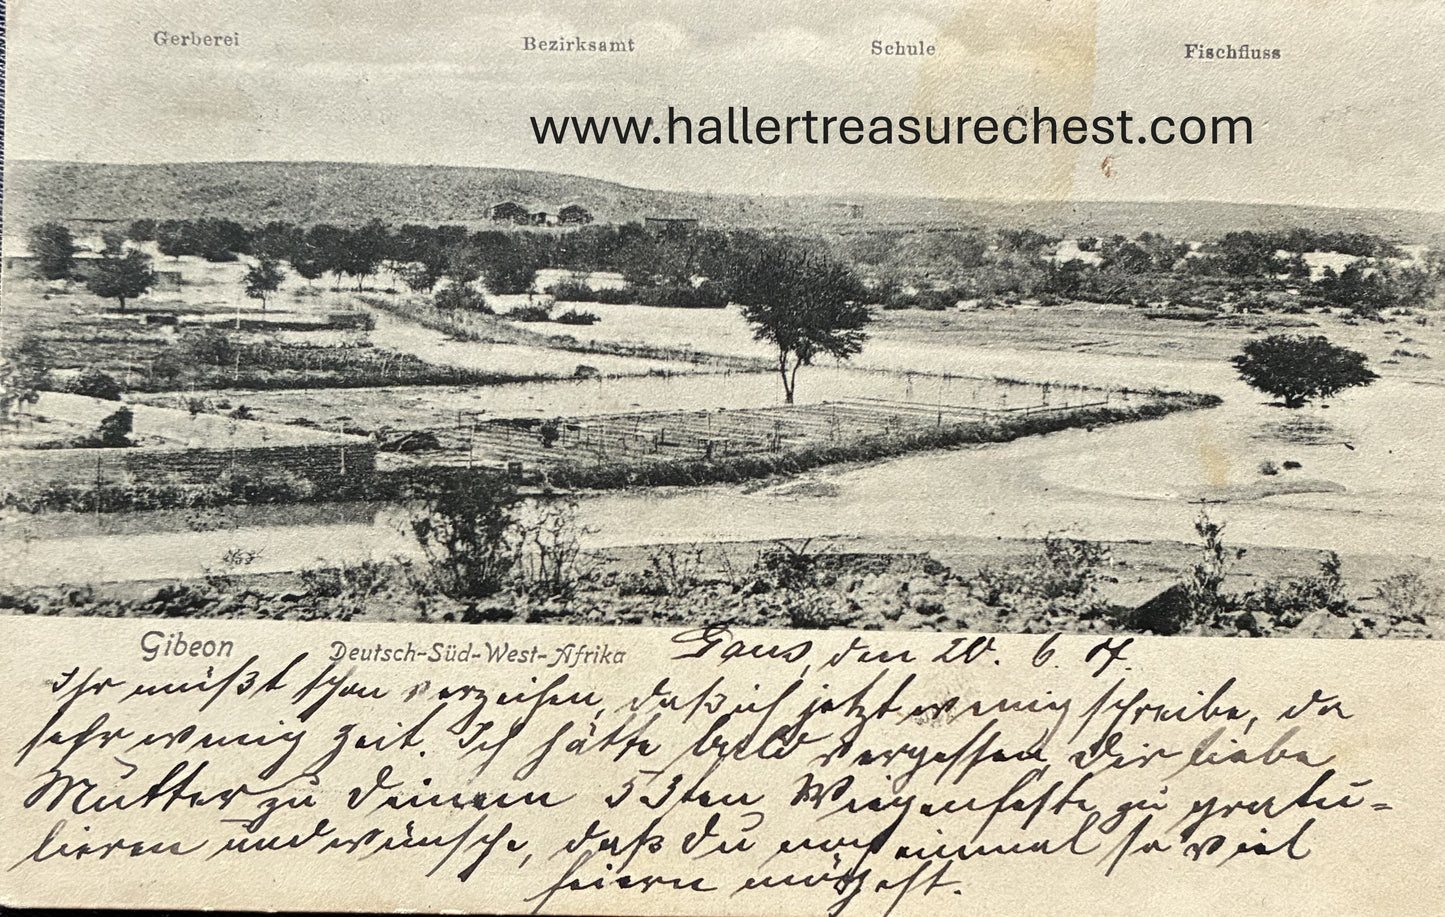 Gerberei Bezirksamt Schule Fischfluss
www.hallertreasurechest.com
Gibeon Deutsch-Süd-West-Afrika
den 20. 6. 07.
Ihr müßt schon verzeihen, daß ich jetzt wenig schreibe, da
sehr wenig Zeit. Ich hätte bald vergessen, Dir liebe
Mutter zu Deinem 53ten Wiegenfeste zu gratu-
lieren und wünsche, daß Du noch einmal so viel
feiern mögest.